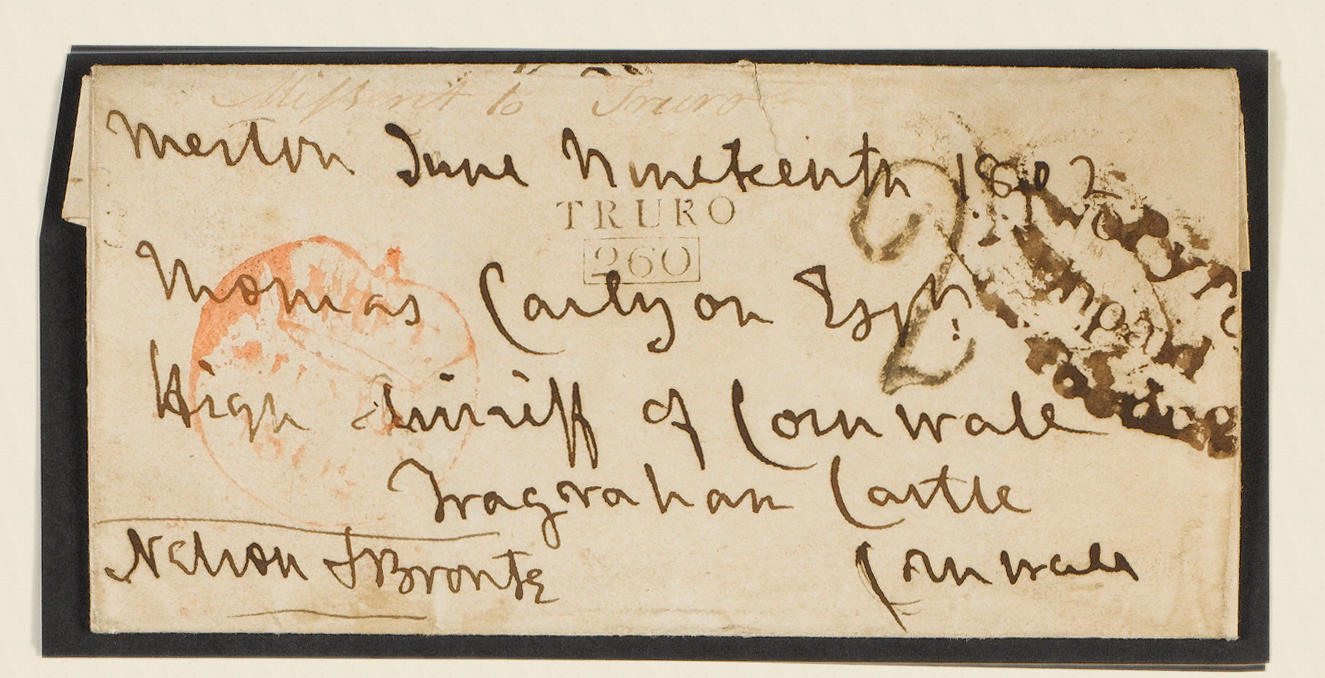 Missent to Truro
Merton June Nineteenth 1802
TRURO
260
2
Thomas Carlyon Esqr:
High Shirriff of Cornwall
Tragrahan Castle
Nelson & Bronte
Cornwall